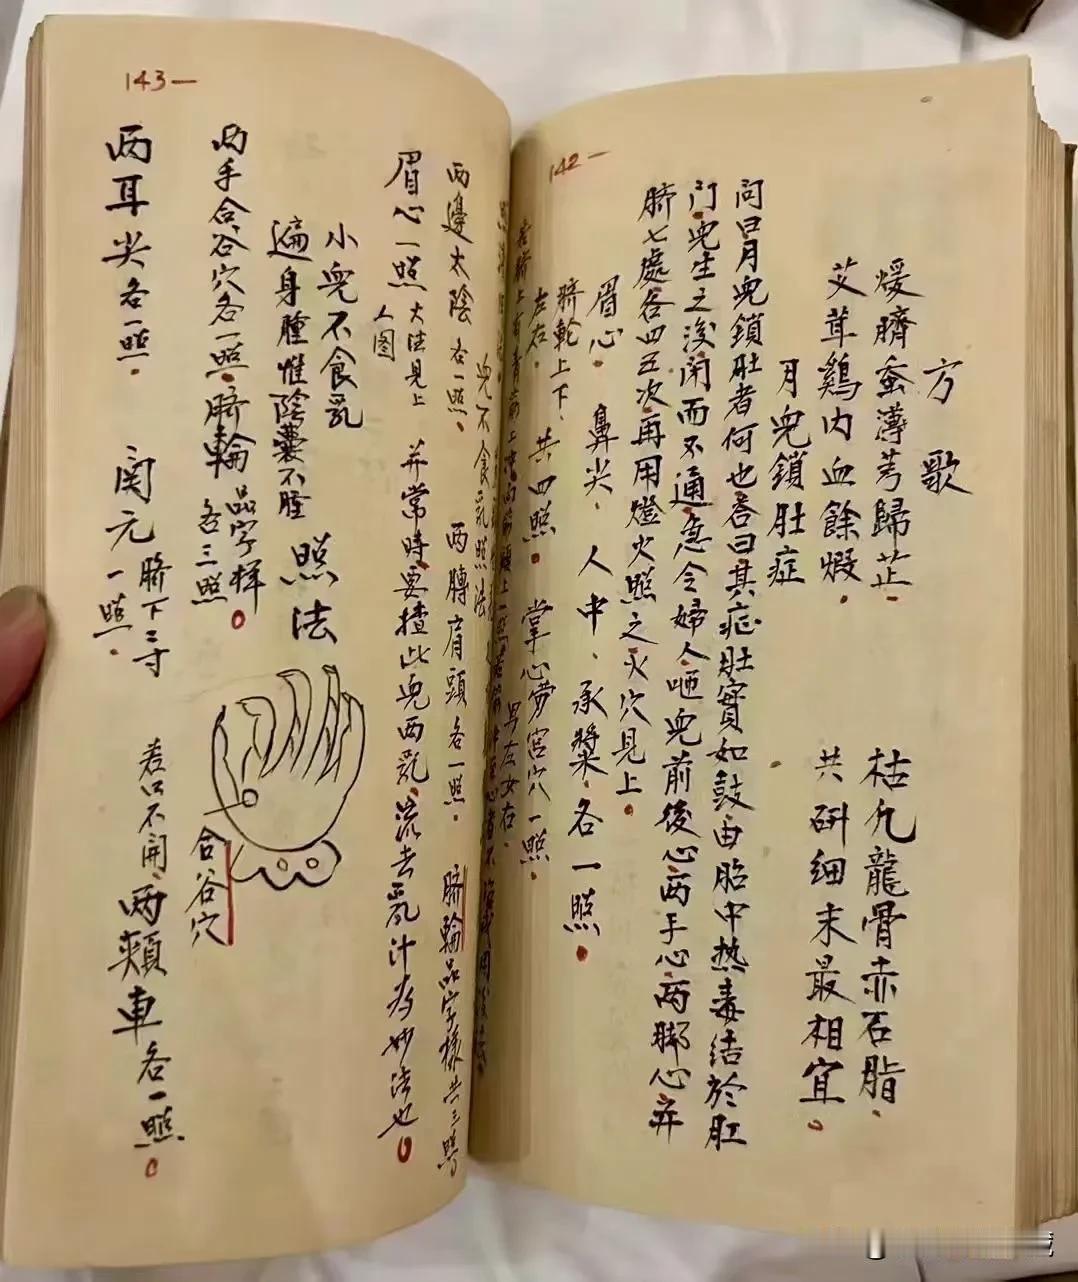 142—
方歌
煖臍蚕薄芎歸芷
枯九龍骨赤石脂
艾茸鷄内血餘煆
共研细末最相宜
月兒鎖肚症
問曰月兒鎖肚者何也答曰其症肚實如鼓由胎中热毒结於肛
门兒生之後闭而不通急令婦人咂兒前後心两手心两脚心弃
脐七處各四五次再用燈火照之灸穴見上
眉心 鼻尖 人中 承漿各一照
脐輪上下
左右
共四照 掌心劳宫穴一照
男左女右
兒不食乳照法
两邊太陰各一照 两膊肩頭各一照 脐輪品字樣共三照
眉心一照 大法見上 人图 并常時要揸此兒两乳流去乳汁为妙法也
小兒不食乳
遍身腫惟陰囊不腫
照法
合谷穴
143—
两手合谷穴各一照 脐輪品字樣各三照
两耳尖各一照 関元脐下二寸一照 若口不開 两頰車各一照